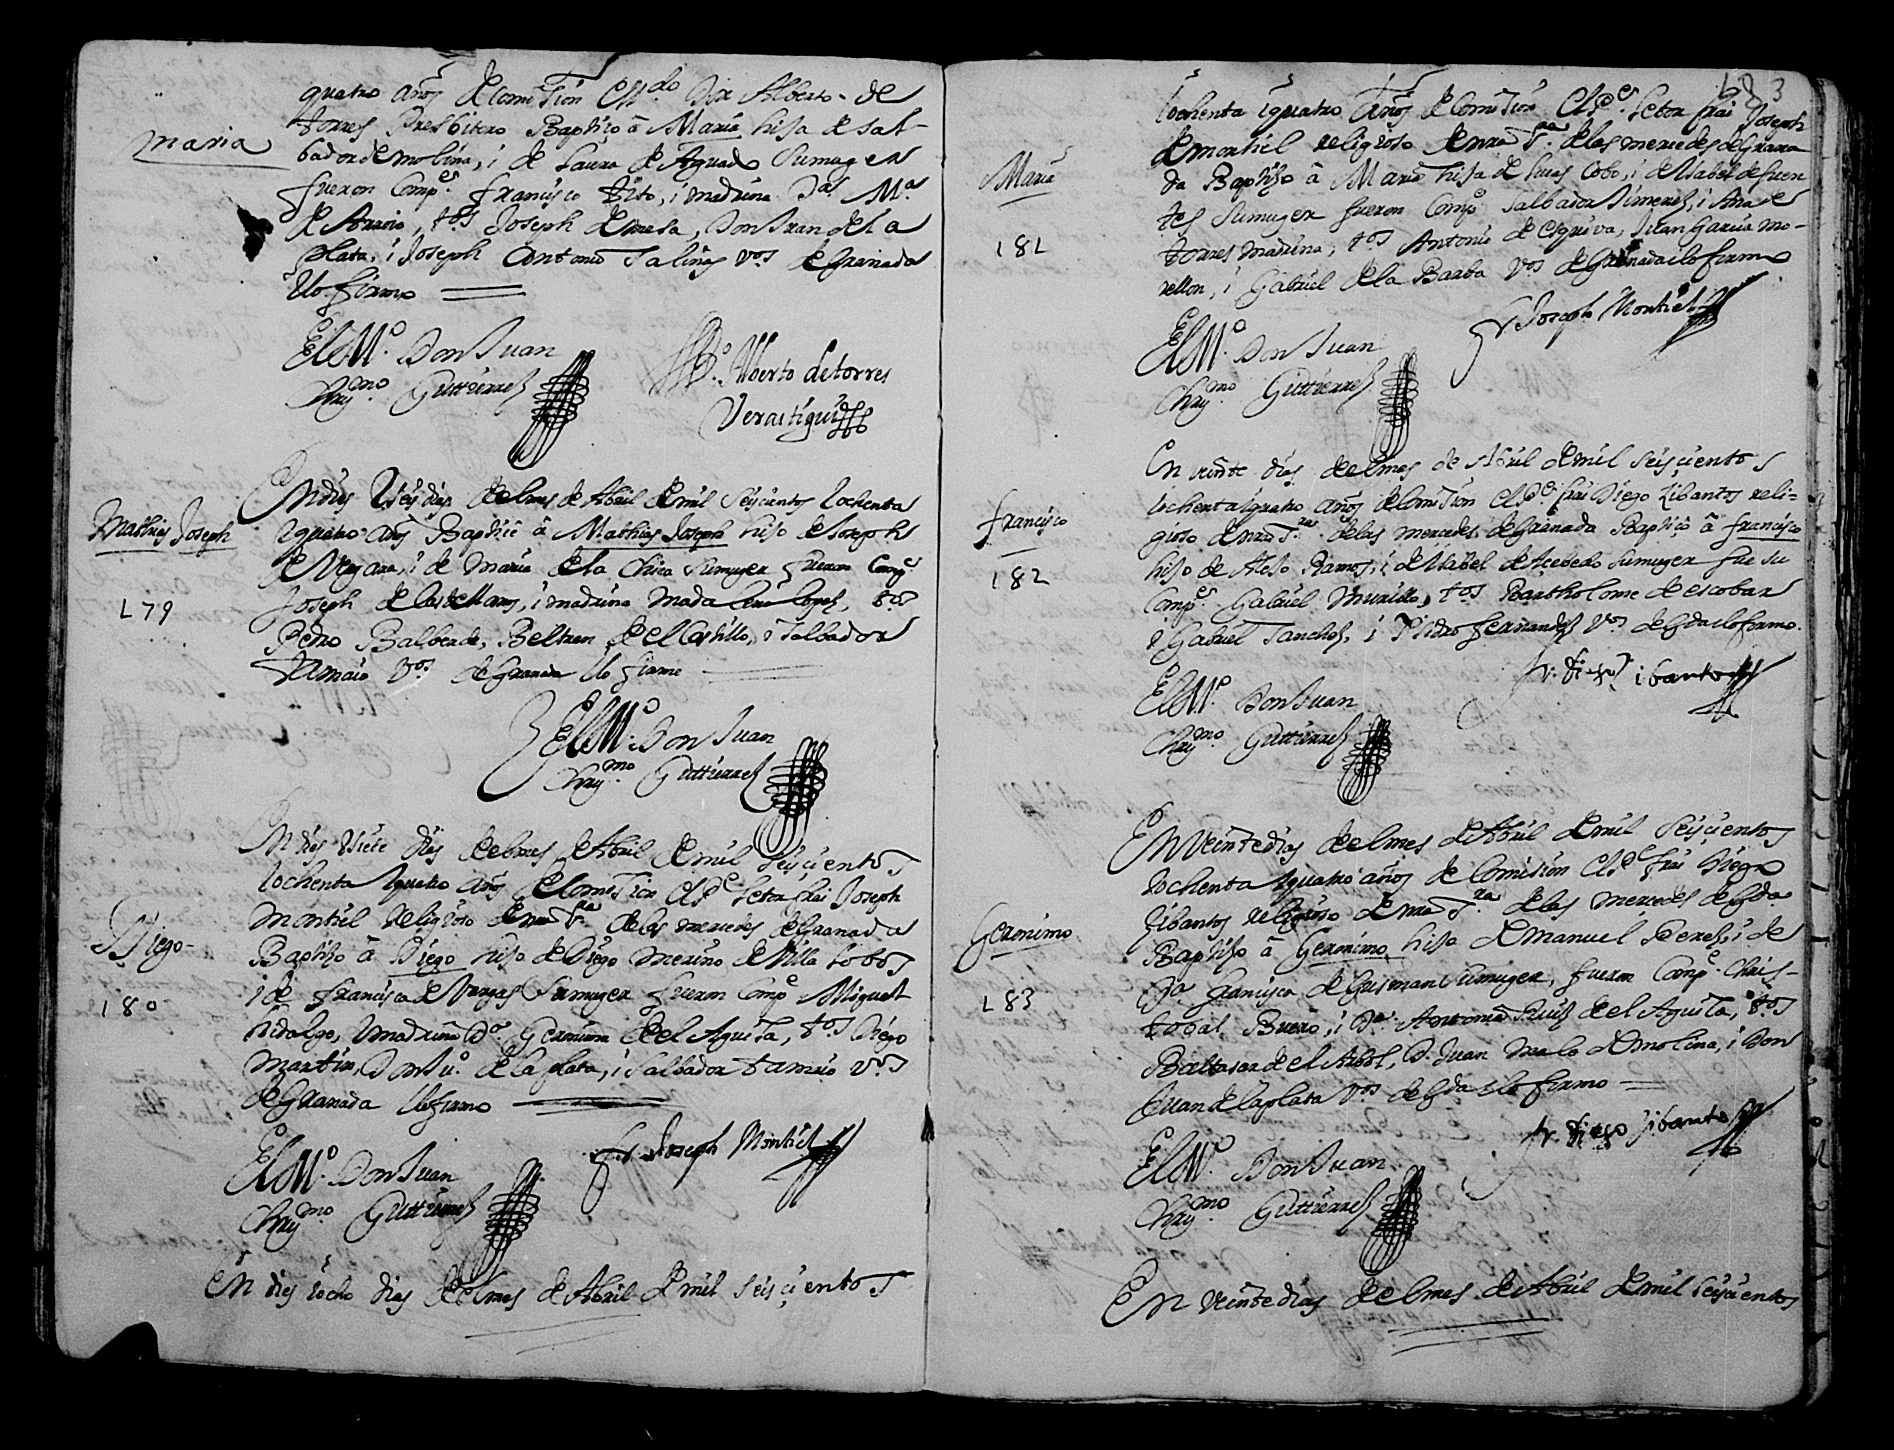 quatro años de comision el l.do Don Alberto de
torres Presbitero Baptiço â Maria hija de sal-
maria
bador de molina, i de Laura de Aguado Sumuger
fueron Comp.es francisco Tito, i madrina D.a M.a
de Arario, t.os Joseph de mesa, Don Juan de La
Plata, i Joseph Antonio Salinas V.os de Granada
Ilo firmo
El M.o Don Juan
Chry.mo Guttierrez
Alberto de torres
Verastigui
En dies Iseis dias del mes de Abril de mil seiscientos Iochenta
Mathias Joseph
Iquatro años Baptiçe â Mathias Joseph hijo de Joseph
de Vergara, i de Maria de la Chica Sumuger fueron Comp.es
Joseph de Castellanos, i madrina Madalena Lopes, t.os
179
Pedro Balberde, Beltran del Castillo, i Salbador
Tamaio V.os de Granada Ilo firme
El M.o Don Juan
Chry.mo Guttierrez
En dies Isiete dias del mes de Abril de mil seiscientos
Iochenta Iquatro años de Comision el P.e Letor frai Joseph
Montiel religioso de nra S.ra de las mercedes de Granada
Diego
Baptiço â Diego hijo de Diego Merino de Villa lobos
i de francisca de Vargas Sumuger fueron Comp.es Miguel
180
hidalgo, Imadrina D.a Geronima del Aguila, t.os Diego
Martin, Don Ju.o de la plata, i Salbador tamaio V.os
de Granada Ilo firmo
El M.o Don Juan
Chry.mo Guttierrez
fr Joseph Montiel
En dies iocho dias del mes de Abril de mil seiscientos
183
iochenta iquatro años de Comision el P.e Letor frai Joseph
de montiel religioso de nra S.ra de las mercedes de Grana
Maria
da Baptiço â Maria hija de Lucas Cobo, i de Isabel de fuen
tes Sumuger fueron Comp.es Salbador Ximenes, i Ana de
181
torres madrina, t.os Antonio de Esquiva, Juan Garcia mo-
rellon, i Gabriel de la Barba V.os de Granada ilo firmo
fr Joseph Montiel
El M.o Don Juan
Chry.mo Guttierrez
En veinte dias del mes de Abril de mil seisçientos
iochenta iquatro años de Comision el P.e frai Diego Xibantos reli-
francisco
gioso de nra S.ra de las mercedes de Granada Baptiço â francisco
182
hijo de Alejo Ramos, i de Isabel de Açebedo Sumuger fue su
Comp.e Gabriel Murillo, t.os Bartholome de escobar
i Gabriel Sanches, i Isidro fernandes V.os de G.da ilo firmo.
fr. diego xibantos
El M.o Don Juan
Chry.mo Guttierrez
En Veinte dias del mes de Abril de mil seisçientos
Iochenta Iquatro años de Comision el P.e frai Diego
Geronimo
Xibantos religioso de nra S.ra de las mercedes de G.da
Baptiço â Geronimo hijo de Manuel Peres, i de
D.a francisca de Gusman Sumuger, fueron Comp.e Chris-
183
tobal Bueno, i D.a Antonia Ruis del Aguila, t.os
Baltasar del Arbol, D. Juan Malo de Molina, i Don
Juan de la plata V.os de G.da ilo firmo
fr. diego xibantos
El M.o Don Juan
Chry.mo Guttierrez
En veinte dias del mes de Abril de mil seisçientos